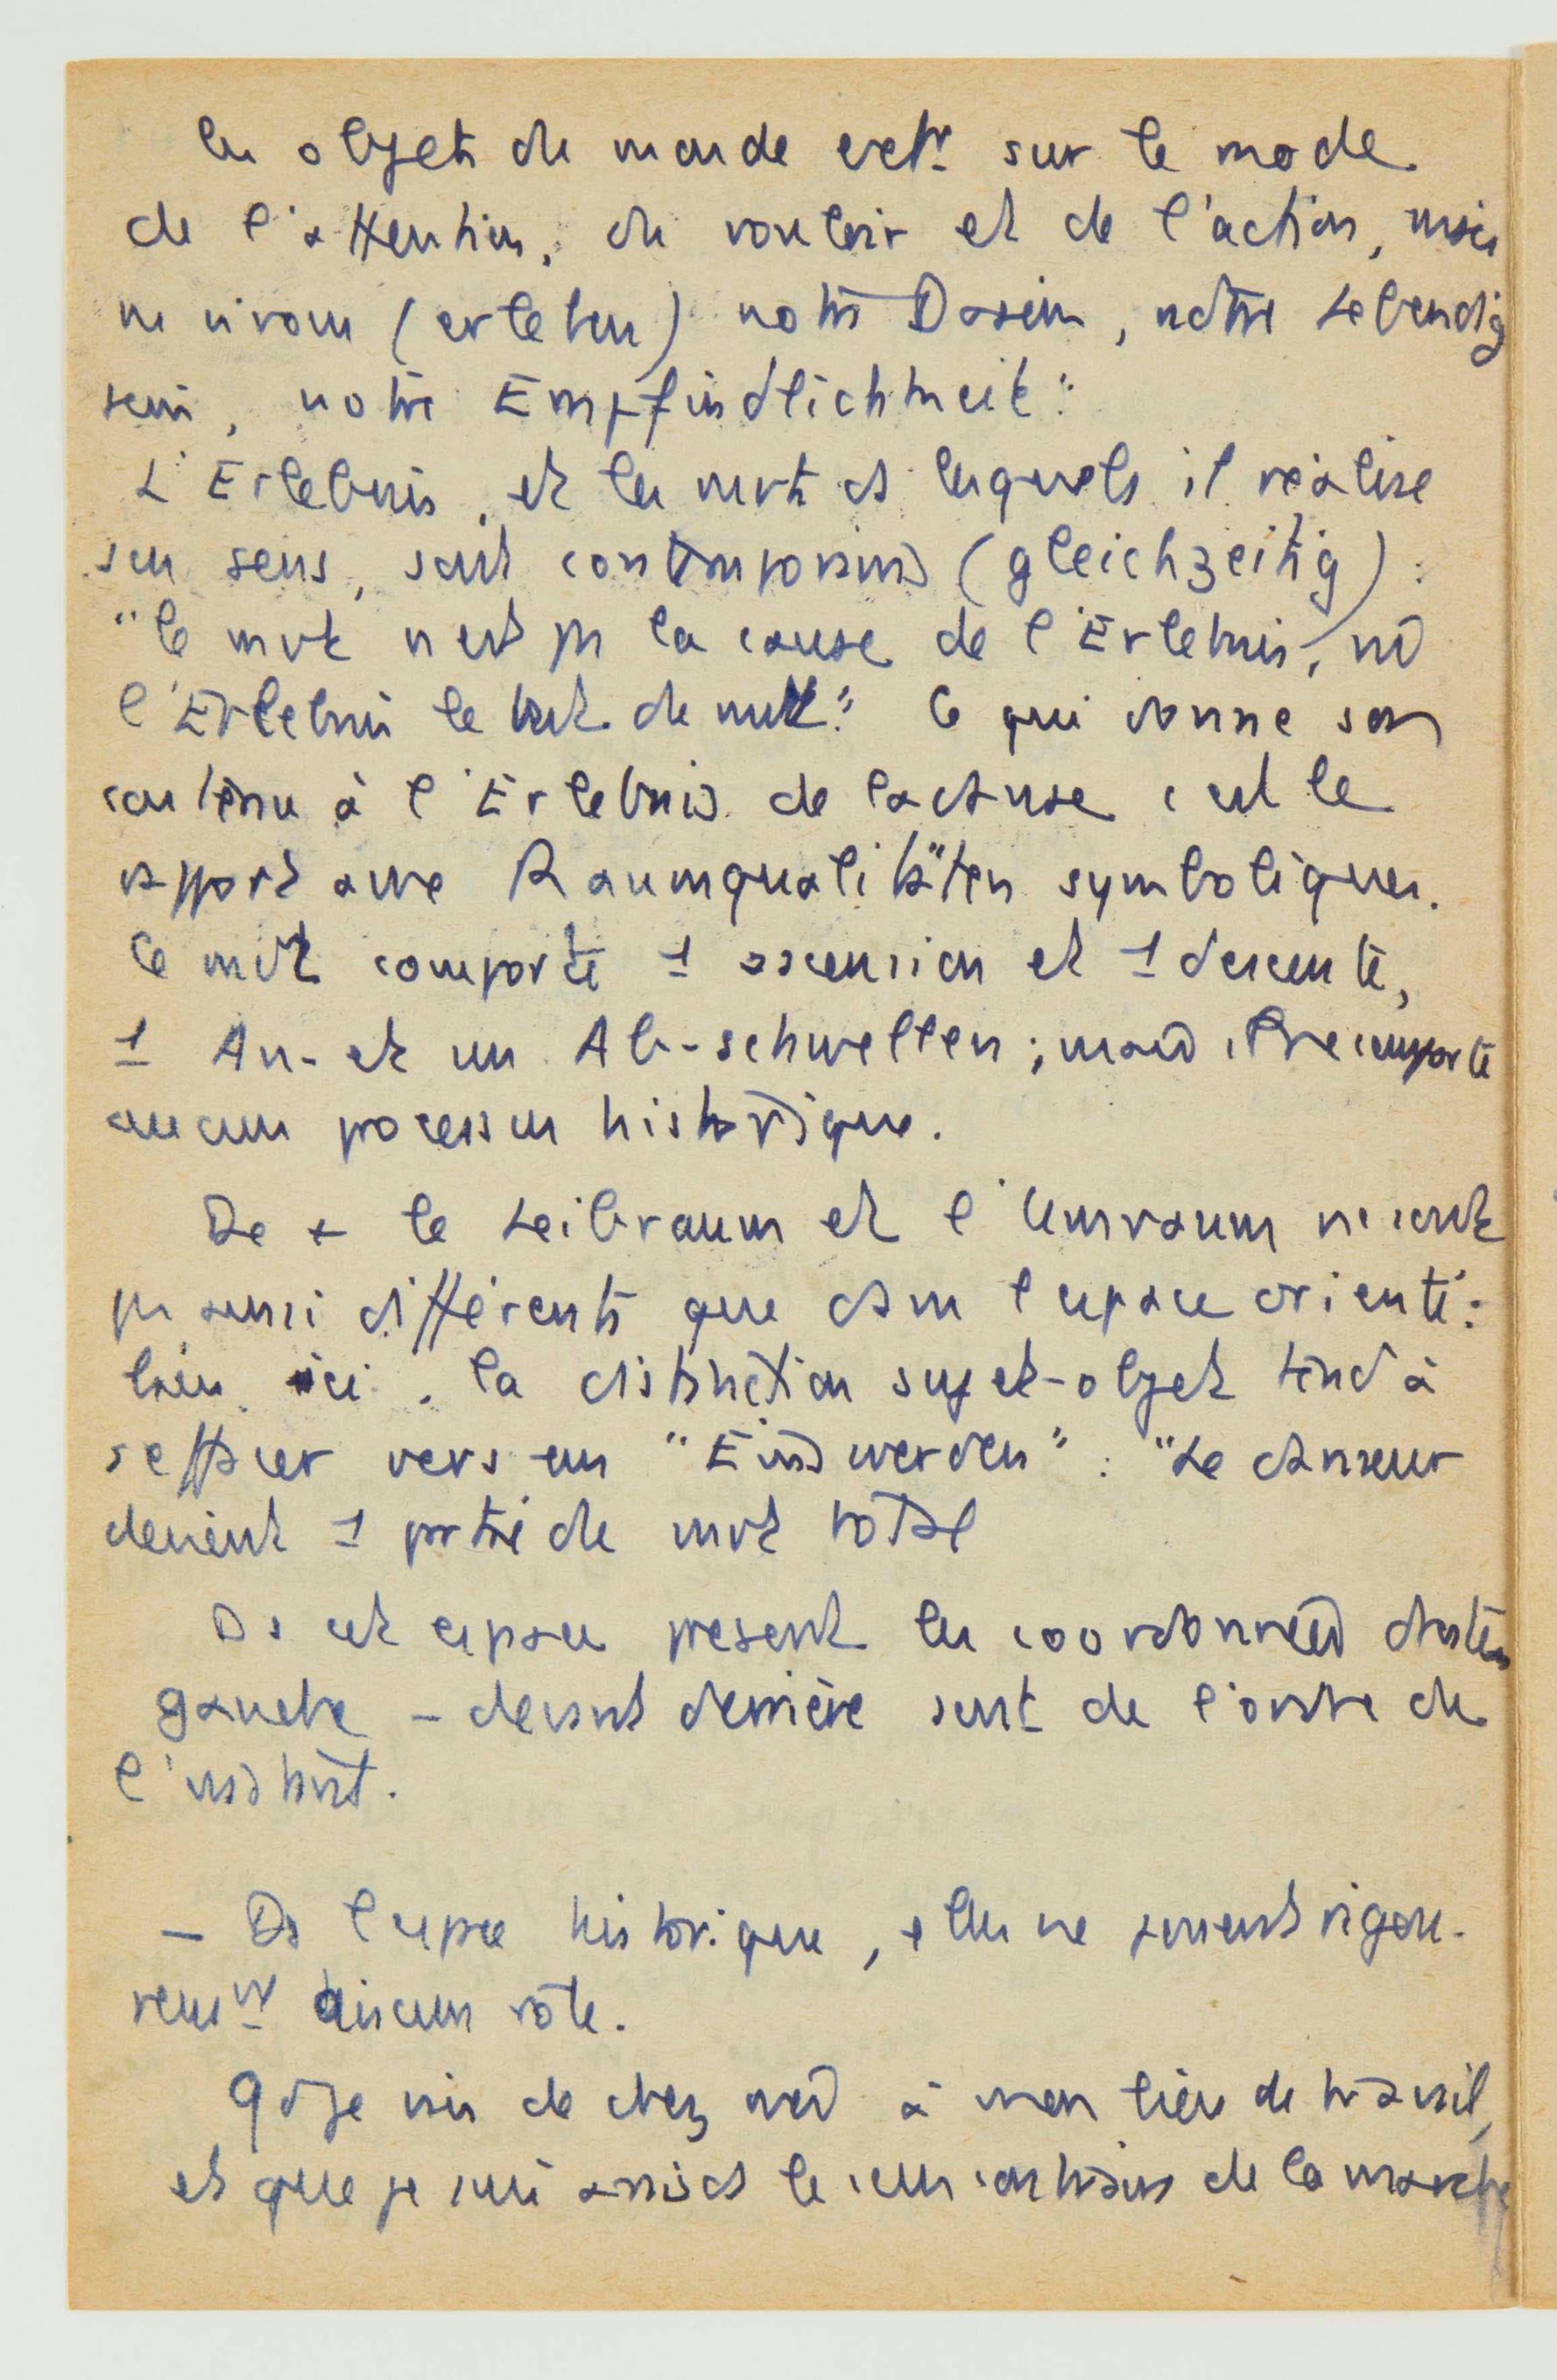 les objets du monde extr sur le mode
de l'attention, du vouloir et de l'action, mais
ns vivons (erleben) notre Dasein, notre Lebendig
sein, notre Empfindlichkeit"
L'Erlebnis, et les mvts ds lesquels il réalise
son sens, sont contemporains (gleichzeitig) :
"le mvt n'est pas la cause de l'Erlebnis, ni
l'Erlebnis le but du mvt." Ce qui donne son
contenu à l'Erlebnis de la danse c'est le
rapport aux Raumqualitäten symboliques.
Ce mvt comporte 1 ascension et 1 descente,
1 An- et un Ab-schwellen ; mais il ne comporte
aucun processus historique.
De + le Leibraum et l'Umraum ne sont
pas aussi différents que dans l'espace orienté :
bien ici, la distinction sujet-objet tend à
s'effacer vers un "Einswerden" : "Le danseur
devient 1 partie du mvt total
Ds cet espace présent les coordonnées droite
gauche - devant derrière sont de l'ordre de
l'instant.
- Ds l'espace historique, elles ne jouent rigou-
reusnt aucun rôle.
Qd je vais de chez moi à mon lieu de travail,
et que je suis assis ds le sens contraire de la marche